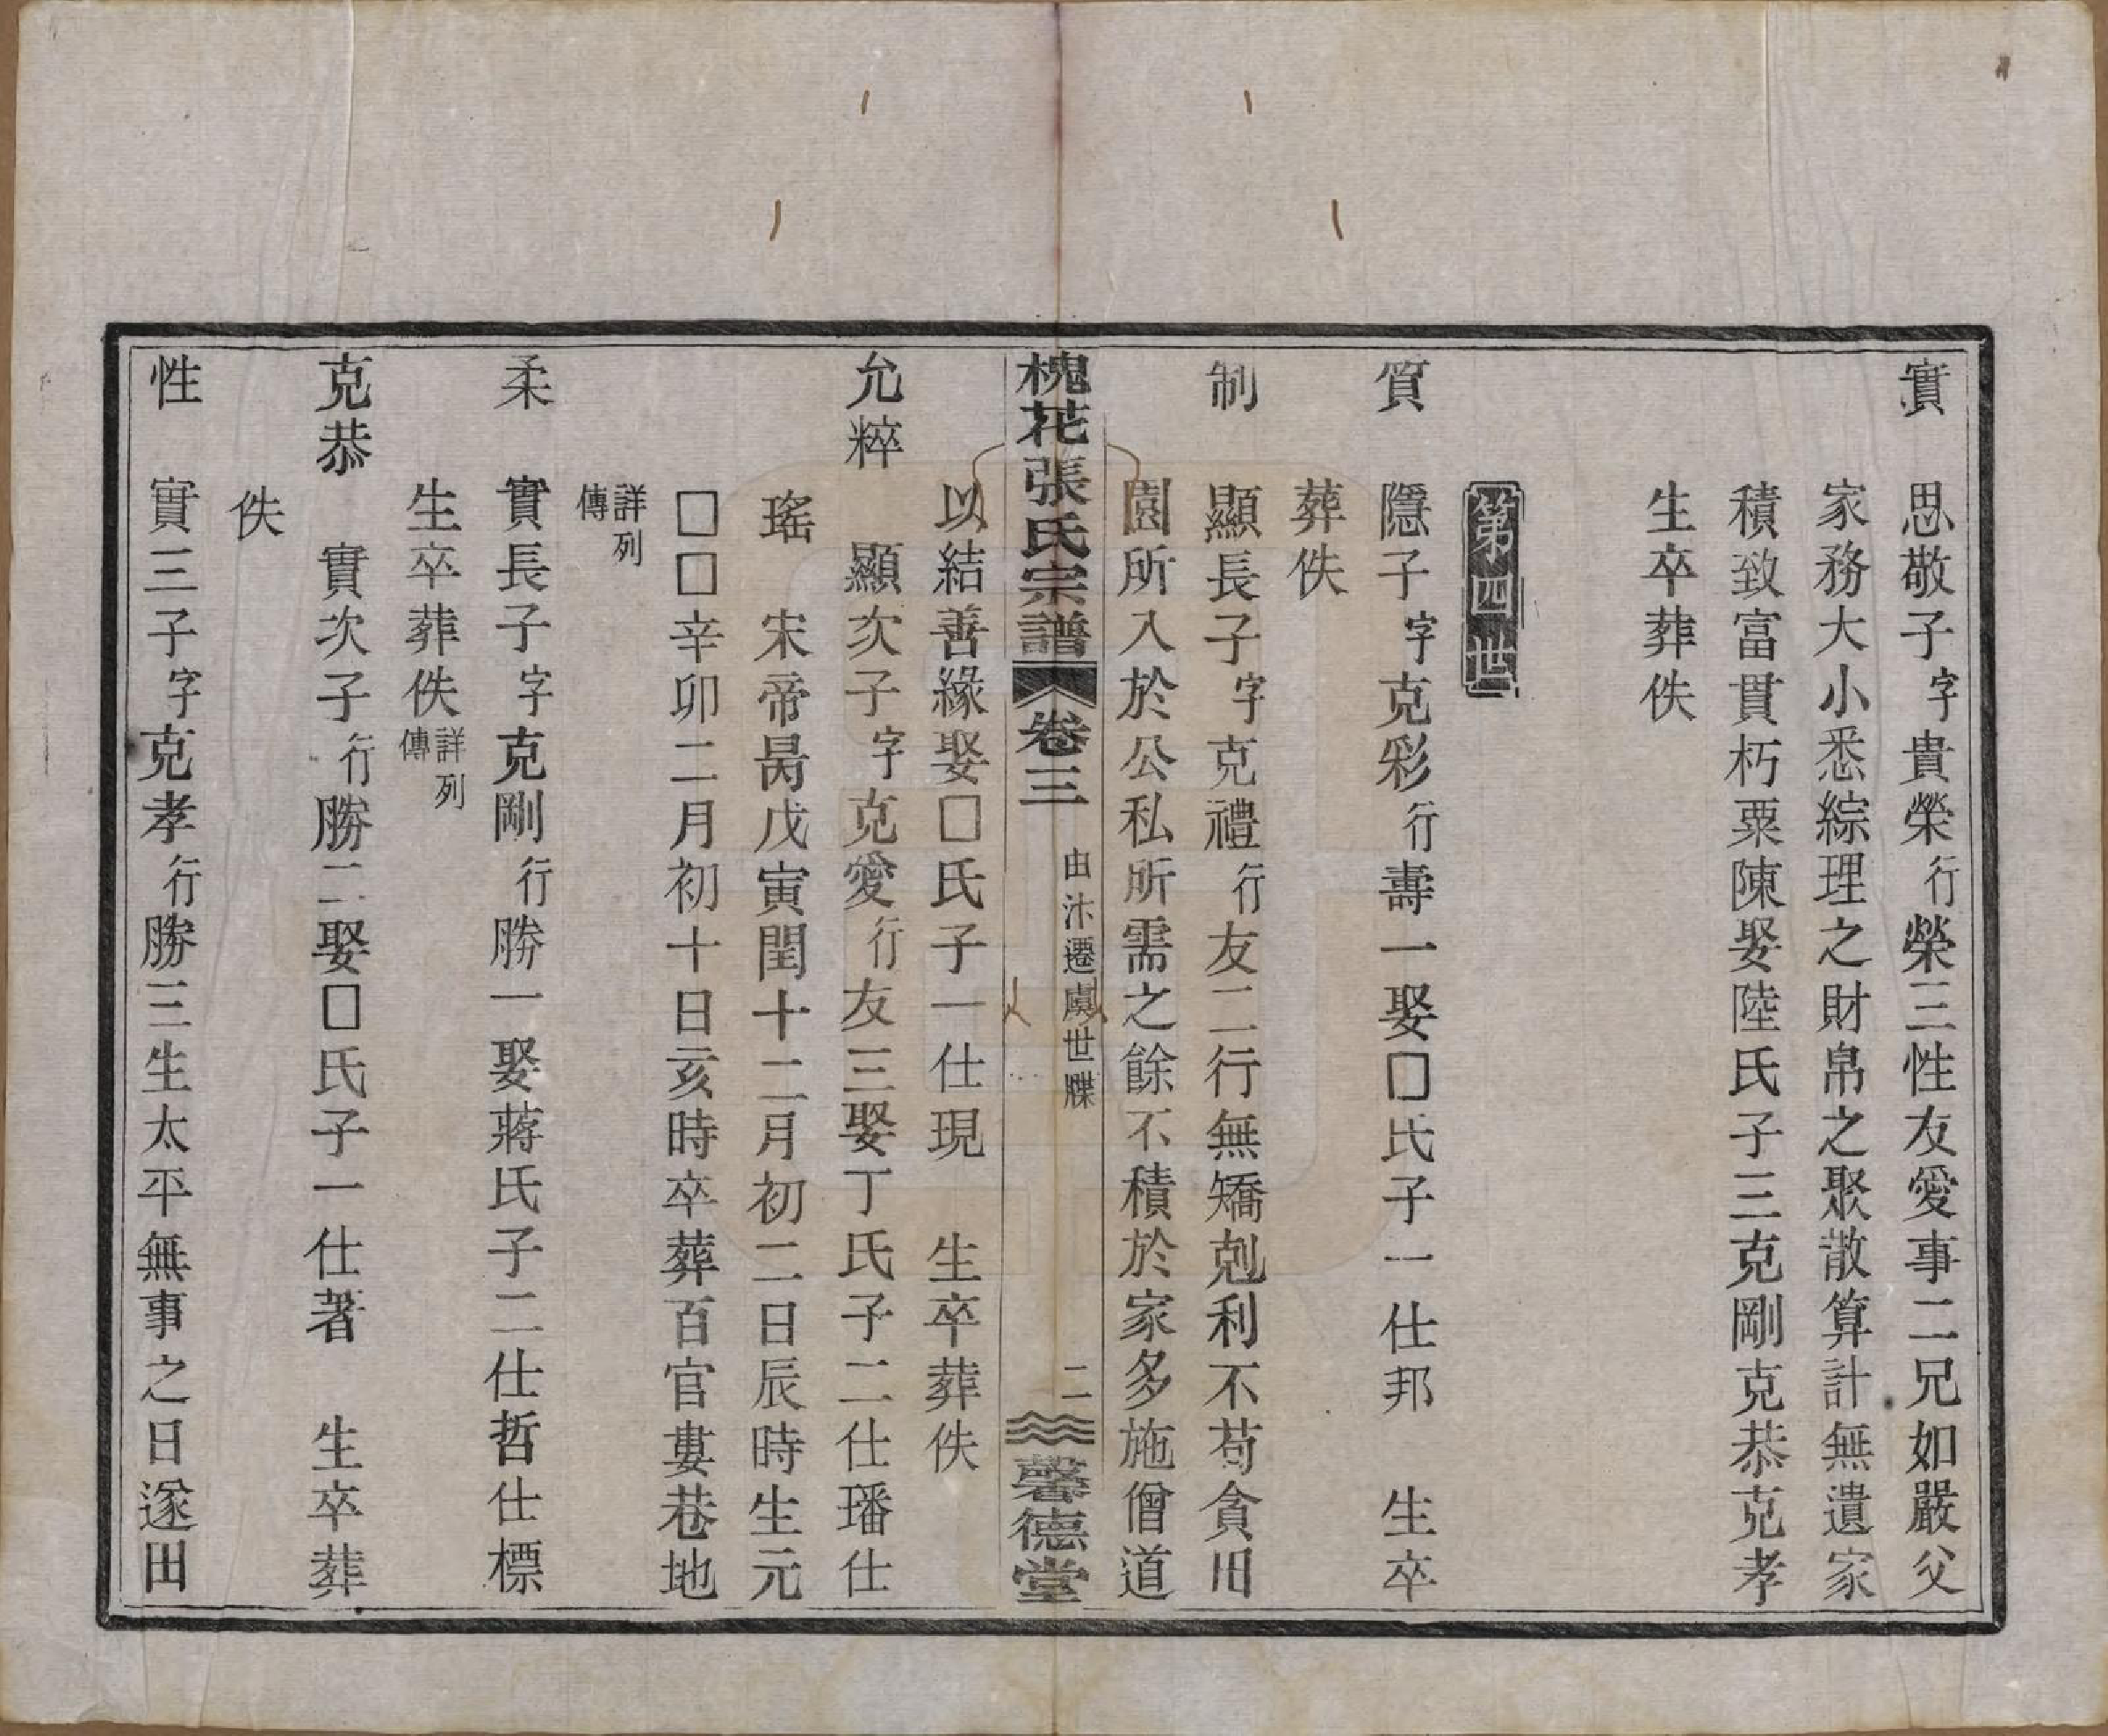 實　思敬子字貴榮行榮三性友愛事二兄如嚴父
家務大小悉綜理之財帛之聚散算計無遺家
積致富貫朽粟陳娶陸氏子三克剛克恭克孝
生卒葬佚
第四世
質　隱子字克彩行壽一娶□氏子一仕邦　生卒
葬佚
制　顯長子字克禮行友二行無矯剋利不苟貪田
園所入於公私所需之餘不積於家多施僧道
槐花張氏宗譜　卷三　由汴遷虞世牒　二　馨德堂
以結善緣娶□氏子一仕現　生卒葬佚
允粹　顯次子字克愛行友三娶丁氏子二仕璠仕
瑤　宋帝昺戊寅閏十二月初二日辰時生元
□□辛卯二月初十日亥時卒葬百官婁巷地
詳列傳
柔　實長子字克剛行勝一娶蔣氏子二仕哲仕標
生卒葬佚詳列傳
克恭　實次子行勝二娶□氏子一仕著　生卒葬
佚
性　實三子字克孝行勝三生太平無事之日遂田